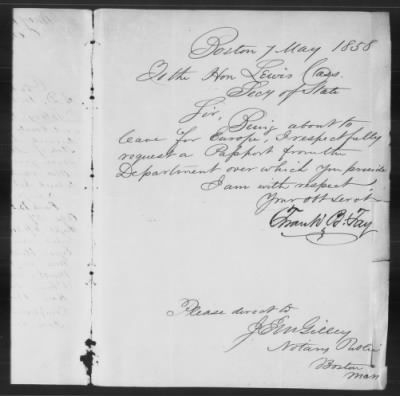 Boston 7 May 1858
To the Hon Lewis Cass.
Secy of State
Sir, Being about to
leave for Europe, I respectfully
request a Passport from the
Department over which you preside
I am with respect
Your Obt Servt
Frank B. Fay
Please direct to
Notary Public
Boston
Mass